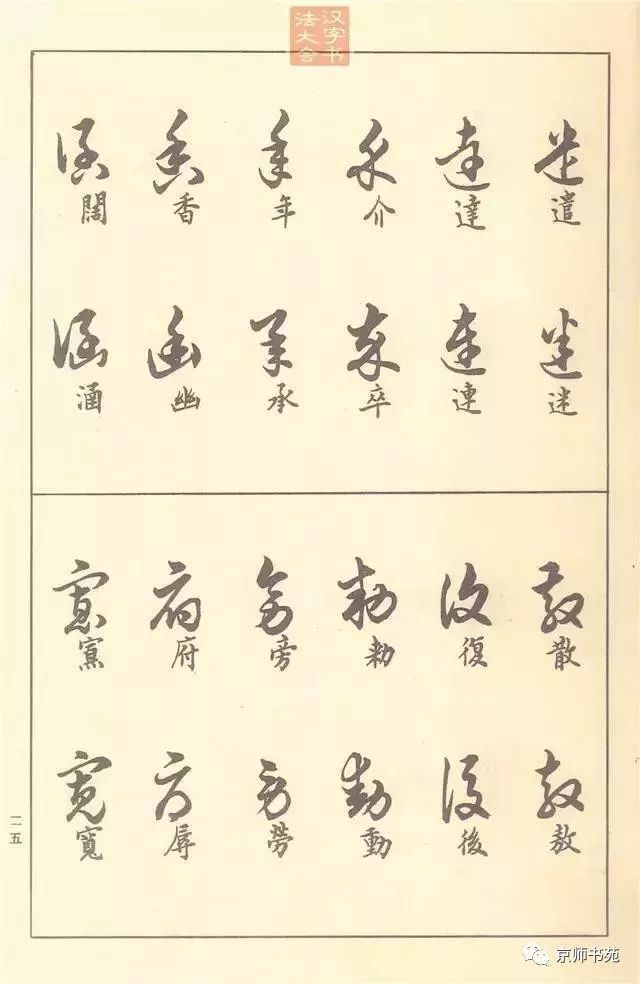 汉字书
法大会
遣
迷
達
連
介
卒
年
承
香
幽
闊
涵
散
敖
復
後
勅
動
旁
勞
府
辱
寬
二五
京师书苑